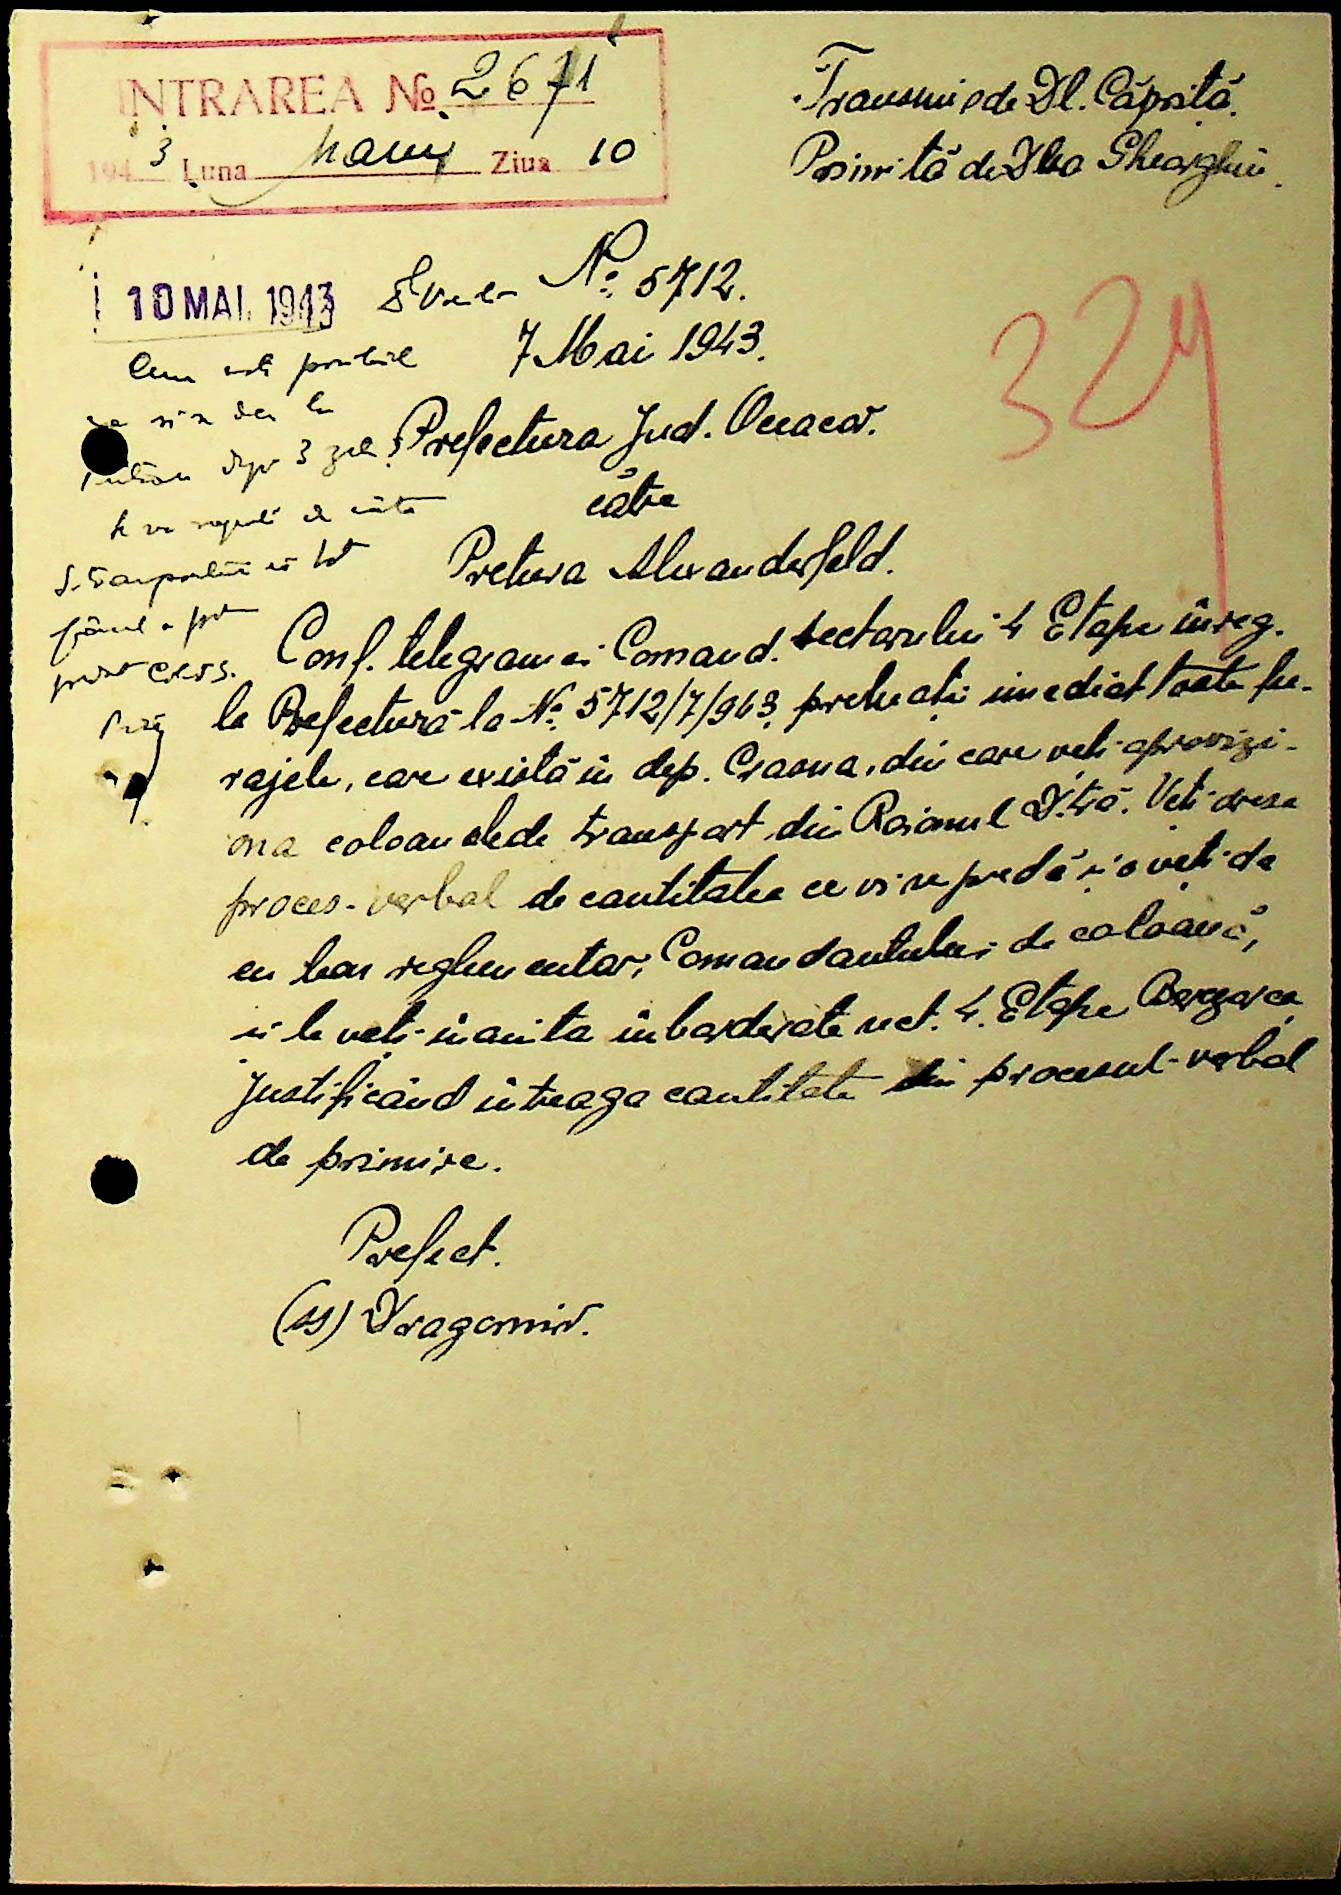 INTRAREA No 2671
1943 Luna Maiu Ziua 10
Transmisde Dl. Căpriță.
Primită de Dra Gheorghiu.
10 MAI. 1943
No. 5712.
7 Mai 1943.
Cum este posibil
3 zile
Prefectura Jud. Oceacov.
către
Pretura Alexanderfeld.
Conf. telegramei Comand. Sectorului 4 Etape înreg.
la Prefectură la No. 5712/7/943, preluați imediat toate fu-
rajele, care există în dep. Crasna, din care veți aprovizi-
ona coloanele de transport din Raionul D.tră. Veți dresa
proces-verbal de cantitatea ce vi se predă și o veți da
cu bon reglementar, Comandantului de coloană,
și le veți înainta înborderate sect. 4. Etape
Justificând întreaga cantitate din procesul-verbal
de primire.
Prefect.
(ss) Dragomir.
324